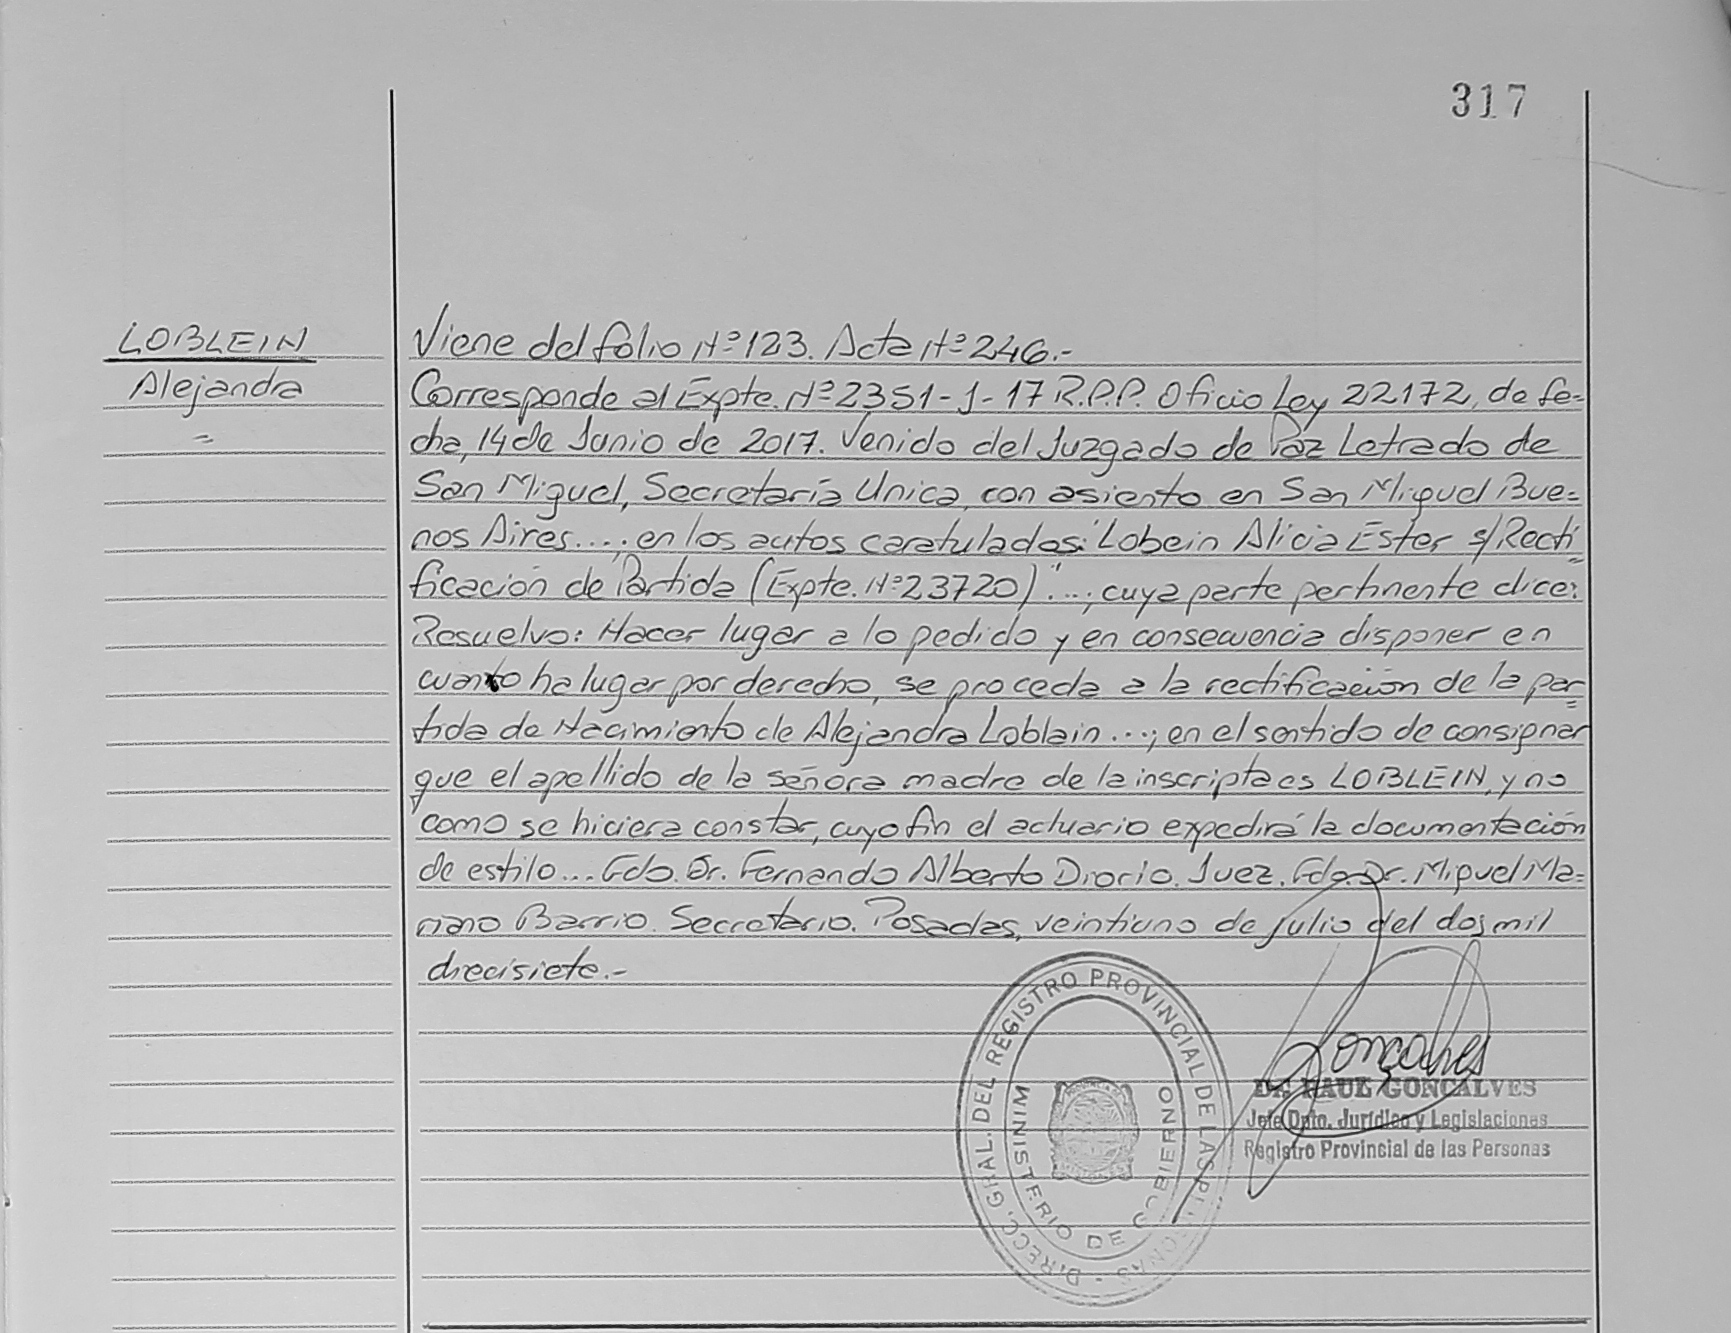 317
LOBLEIN
Alejandra
=
Viene del folio Nº 123. Acta Nº 246.-
Corresponde al Expte. Nº 2351-J-17 R.P.P. Oficio Ley 22172, de fe=
cha, 14 de Junio de 2017. Venido del Juzgado de Paz Letrado de
San Miguel, Secretaría Unica, con asiento en San Miguel Bue=
nos Aires....; en los autos caratulados: "Lobein Alicia Ester s/Recti=
ficación de Partida (Expte. Nº 23720)"...; cuya parte pertinente dice:
Resuelvo: Hacer lugar a lo pedido y en consecuencia disponer en
cuanto ha lugar por derecho, se proceda a la rectificación de la par=
tida de Nacimiento de Alejandra Loblain...; en el sentido de consignar
que el apellido de la señora madre de la inscripta es LOBLEIN, y no
como se hiciera constar, cuyo fin el actuario expedirá la documentación
de estilo... Fdo. Dr. Fernando Alberto Diorio. Juez. Fdo. Dr. Miguel Ma=
riano Barrio. Secretario. Posadas, veintiuno de julio del dos mil
diecisiete.-
DIRECC. GRAL. DEL REGISTRO PROVINCIAL DE LAS PERSONAS -
MINISTERIO DE GOBIERNO
Goncalves
Dr. RAUL GONCALVES
Jefe Dpto. Jurídico y Legislaciones
Registro Provincial de las Personas